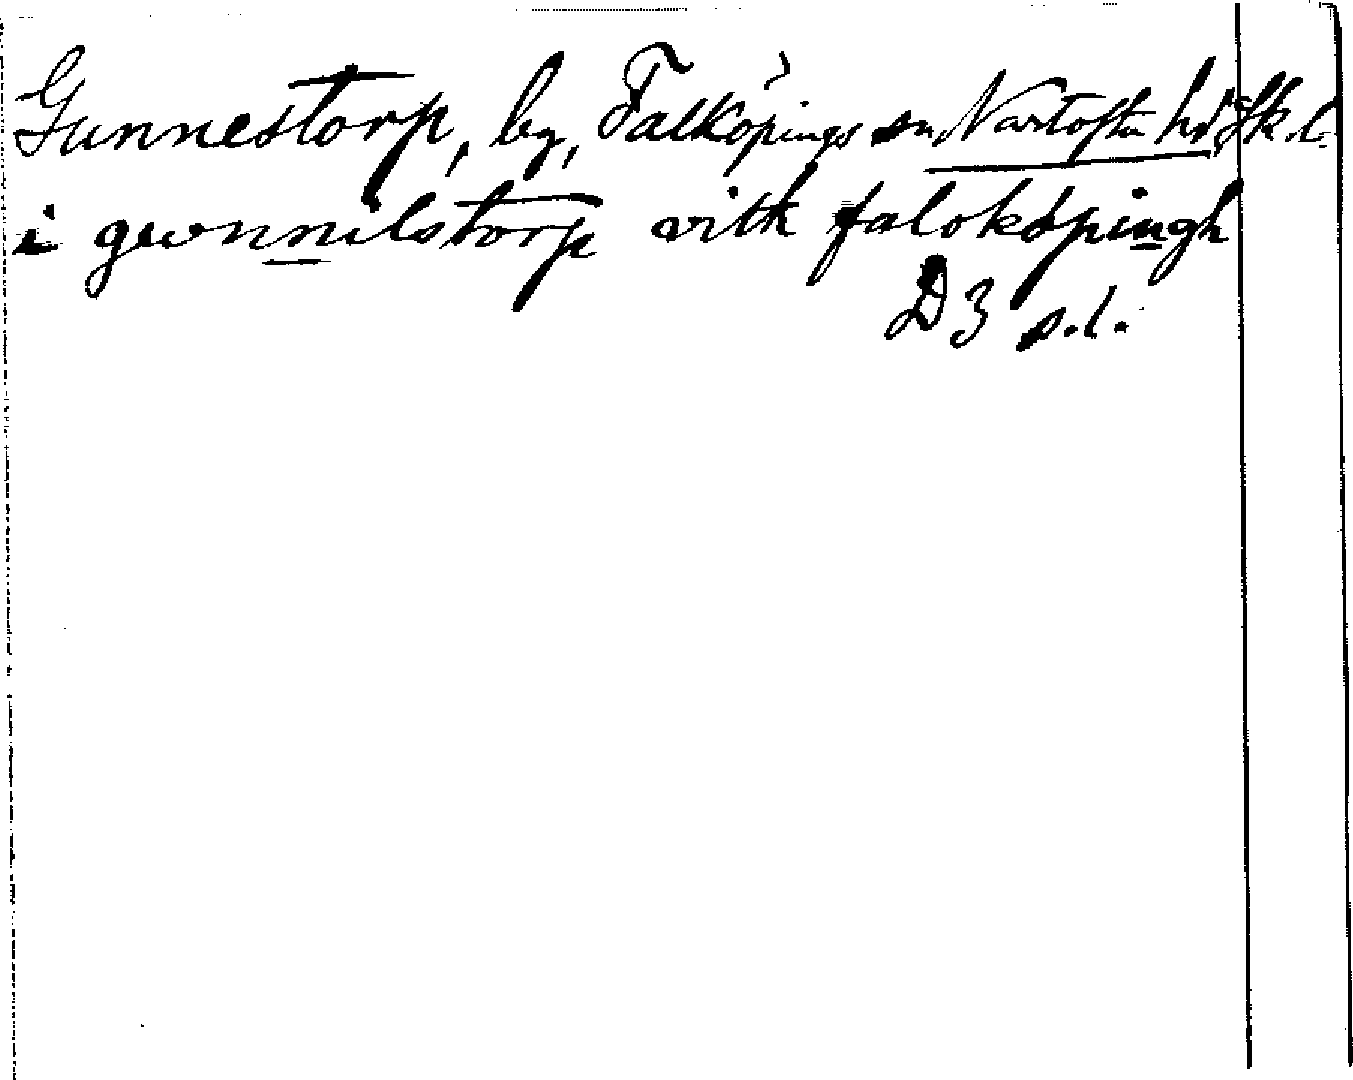 Gunnestorp, by, Falköpings sn, Vartofta hd, Sk. l.
i gwnnilstorp vith falokøpingh
D 3 s.l.